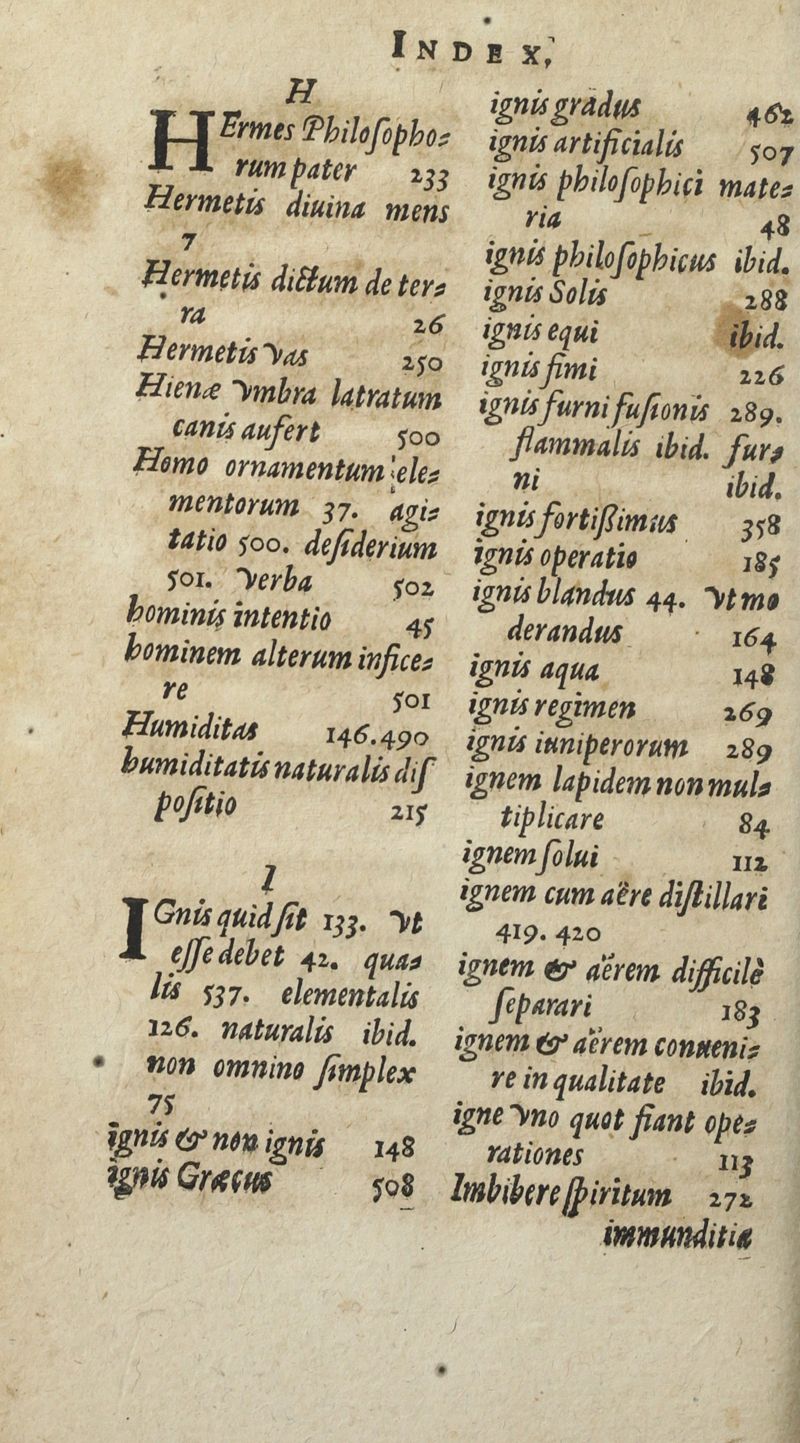 INDEX,
H
HErmes Philosopho=
rum pater 233
Hermetis diuina mens
7
Hermetis dictum de ter=
ra 26
Hermetis vas 250
Hienæ vmbra latratum
canis aufert 500
Homo ornamentum ele=
mentorum 37. agi=
tatio 500. desiderium
501. verba 502
hominis intentio 45
hominem alterum infice=
re 501
Humiditas 146.490
humiditatis naturalis dis
positio 215
I
IGnis quid sit 133. vt
esse debet 42. qua=
lis 537. elementalis
126. naturalis ibid.
non omnino simplex
75
ignis & non ignis 148
ignis Græcus 508
ignis gradus 462
ignis artificialis 507
ignis philosophici mate=
ria 48
ignis philosophicus ibid.
ignis Solis 288
ignis equi ibid.
ignis fimi 226
ignis furni fusionis 289.
flammalis ibid. fur=
ni ibid.
ignis fortissimus 358
ignis operatio 185
ignis blandus 44. vt mo
derandus 164
ignis aqua 148
ignis regimen 269
ignis iuniperorum 289
ignem lapidem non mul=
tiplicare 84
ignem solui 112
ignem cum aëre distillari
419. 420
ignem & aërem difficilè
separari 183
ignem & aërem conueni=
re in qualitate ibid.
igne vno quot fiant ope=
rationes 113
Imbibere spiritum 272
immunditia